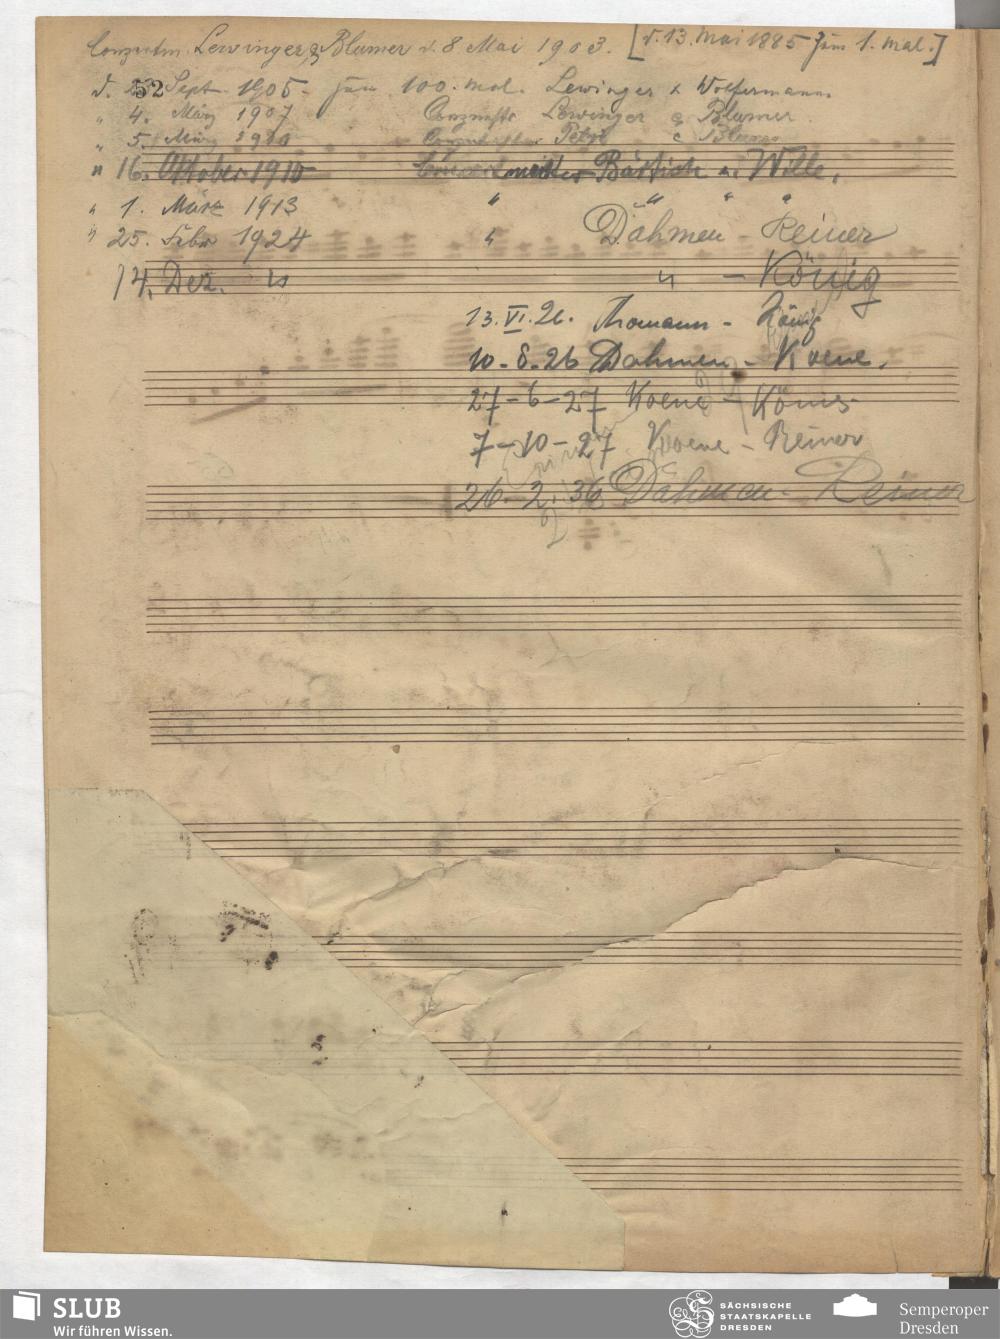 Conzertm. Lewinger & Blumer d. 8 Mai 1903. [d. 13. Mai 1885 zum 1. mal.]
d. 52 Sept. 1905 - zum 100. mal. Lewinger & Wolfermann
" 4. März 1907 Conzmstr Lewinger & Blumer.
" 5. März 1910 Petri & Blumer
" 16. Oktober 1910 Concertmeister Bärtich u. Wille.
" 1. März 1913 " " " "
" 25. Febr 1924 " Dahmen - Reiner
14. Dez. " " - König
13. VI. 26. Thomann - König
10 - 8. 26 Dahmen - Koene.
27 - 6 - 27 Koene - König
7 - 10 - 27 Koene - Reiner
26. 2. 36 Dahmen - Reiner
SLUB
Wir führen Wissen.
SÄCHSISCHE
STAATSKAPELLE
DRESDEN
Semperoper
Dresden